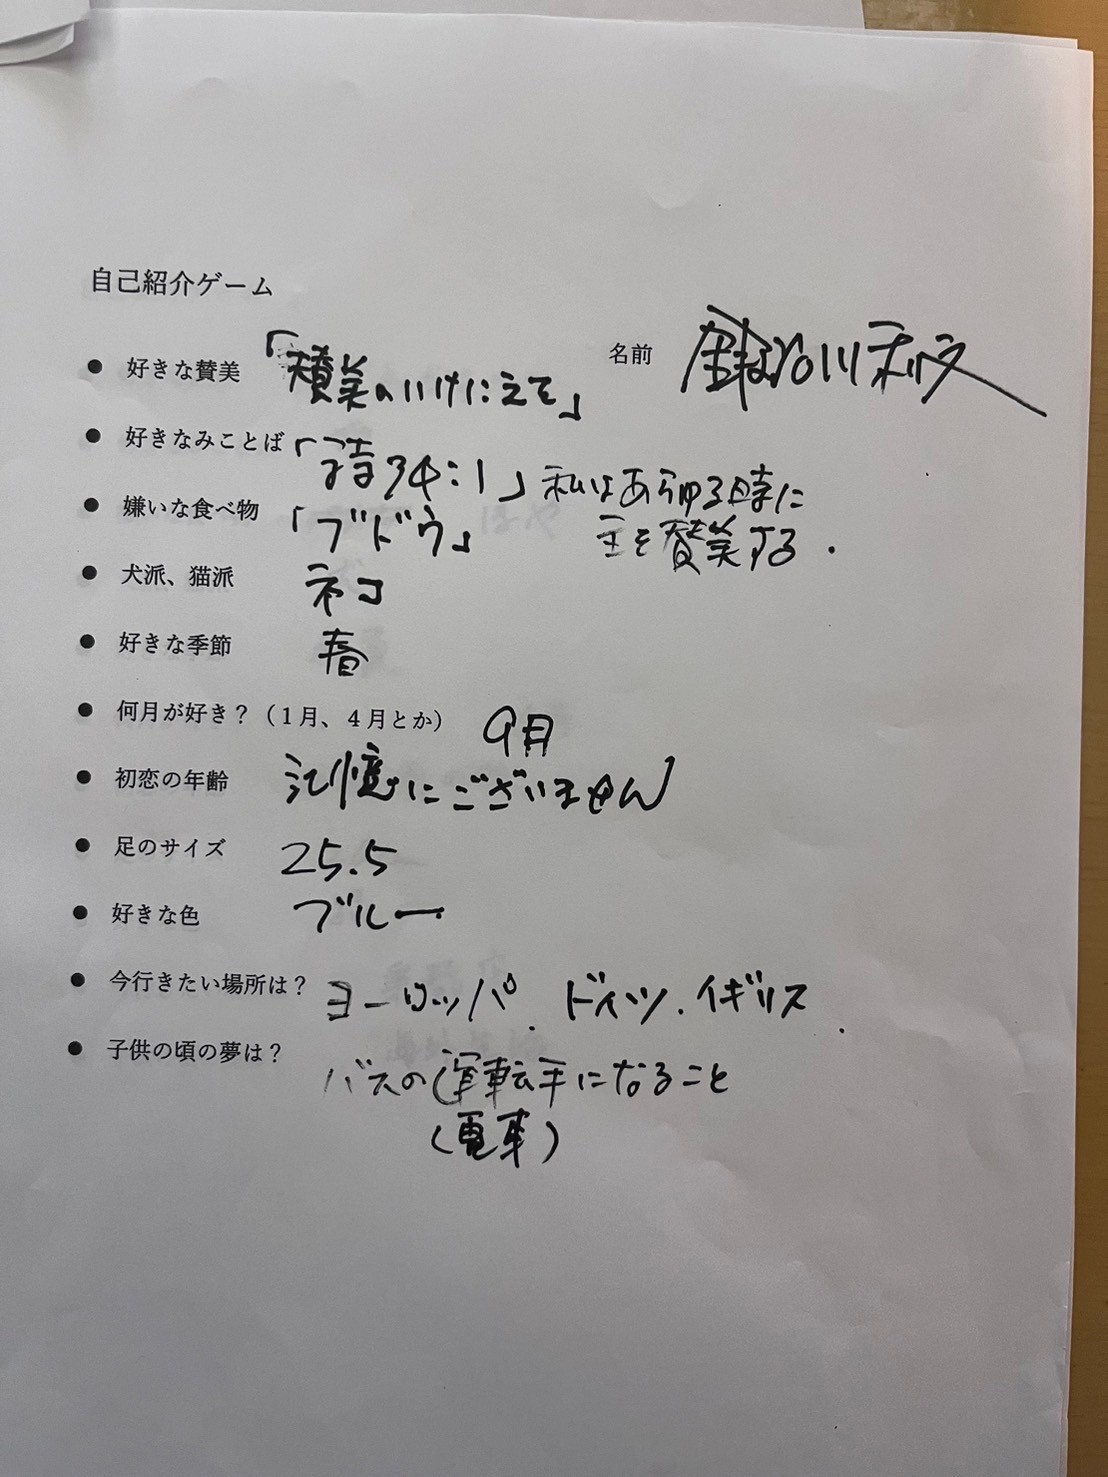 自己紹介ゲーム
● 好きな賛美 「賛美のいけにえを」
名前 川
● 好きなみことば 「詩34:1」私はあらゆる時に
主を賛美する.
● 嫌いな食べ物 「ブドウ」
● 犬派、猫派 ネコ
● 好きな季節 春
● 何月が好き？（１月、４月とか） 9月
● 初恋の年齢 記憶にございません
● 足のサイズ 25.5
● 好きな色 ブルー
● 今行きたい場所は？ ヨーロッパ. ドイツ. イギリス.
● 子供の頃の夢は？ バスの運転手になること
(電車)